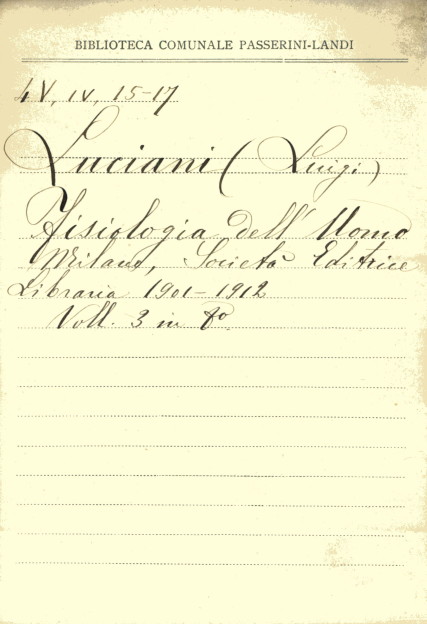 BIBLIOTECA COMUNALE PASSERINI-LANDI
4V, IV, 15-17
Luciani (Luigi)
Fisiologia dell'Uomo
Milano, Società Editrice
Libraria 1901-1912
Voll. 3 in 8º